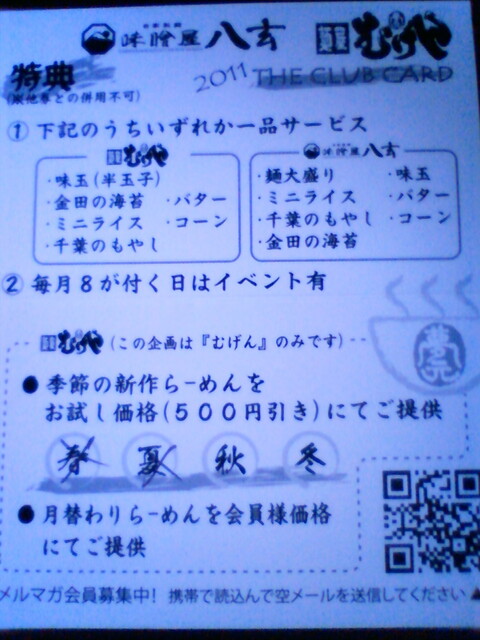 味噌屋 八玄
特典
(※他券との併用不可)
2011 THE CLUB CARD
① 下記のうちいずれか一品サービス
・味玉(半玉子)
・金田の海苔 ・バター
・ミニライス ・コーン
・千葉のもやし
味噌屋 八玄
・麺大盛り ・味玉
・ミニライス ・バター
・千葉のもやし ・コーン
・金田の海苔
② 毎月8が付く日はイベント有
(この企画は『むげん』のみです)
● 季節の新作らーめんを
お試し価格(500円引き)にてご提供
春 夏 秋 冬
● 月替わりらーめんを会員様価格
にてご提供
メルマガ会員募集中! 携帯で読込んで空メールを送信してください▲